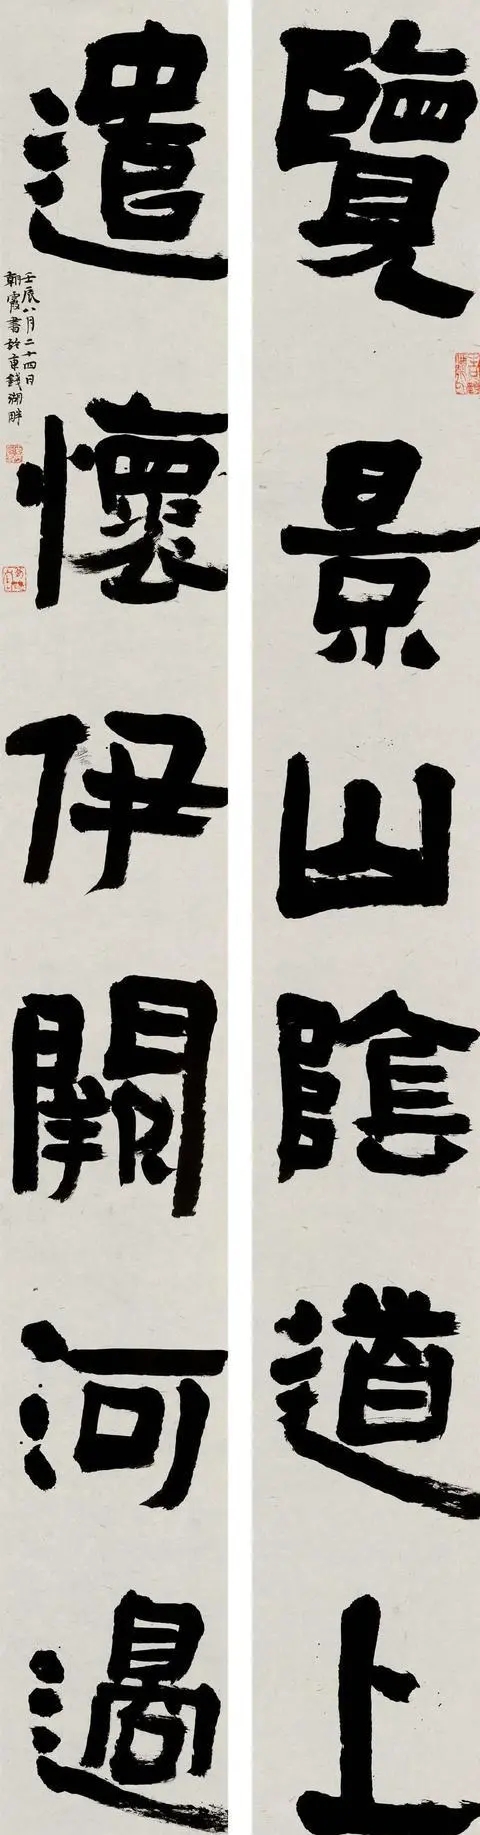 覽景山陰道上
遣懷伊闕河邊
壬辰八月二十四日
朝霞書於東錢湖畔